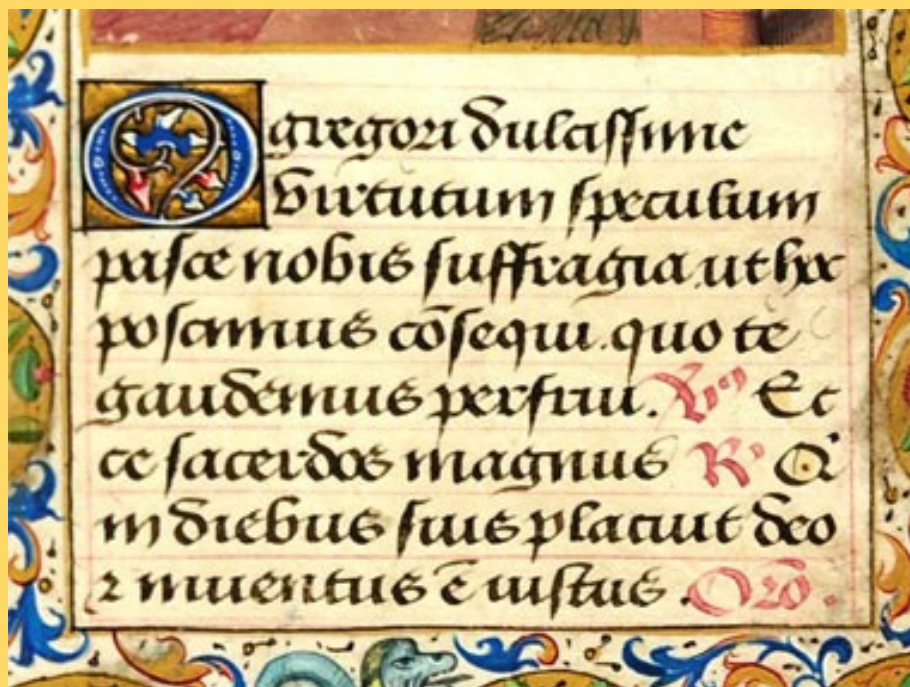 O gregori dulcissime
virtutum speculum
pasce nobis suffragia ut hec
poscimus cōsequi. quo te
gaudemus perfrui. V Ec
ce sacerdos magnus R Qi
in diebus suis placuit deo
⁊ inventus ē iustus. Orō.